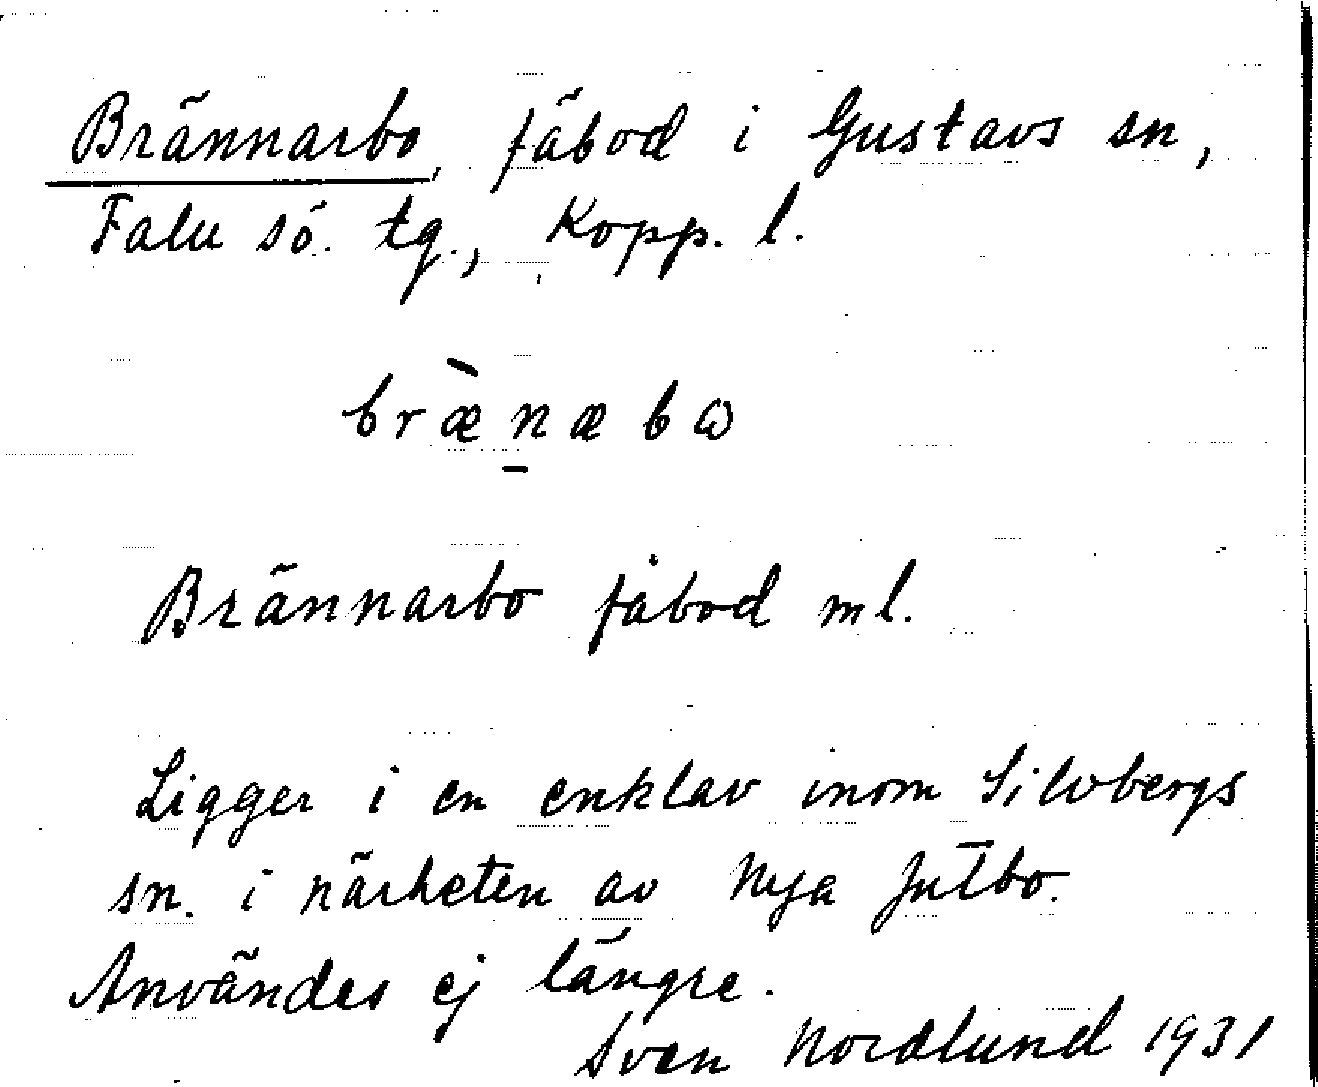 Brännarbo, fäbod i Gustavs sn,
Falu sö. tg., Kopp. l.
bræ̀n̲æbω
Brännarbo fäbod ml.
Ligger i en enklav inom Silvbergs
sn. i närheten av Nya Jutbo.
Användes ej längre.
Sven Nordlund 1931